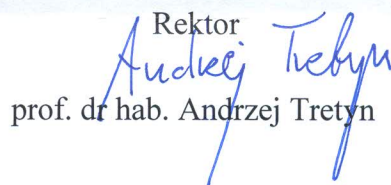 Rektor
Andrzej Tretyn
prof. dr hab. Andrzej Tretyn